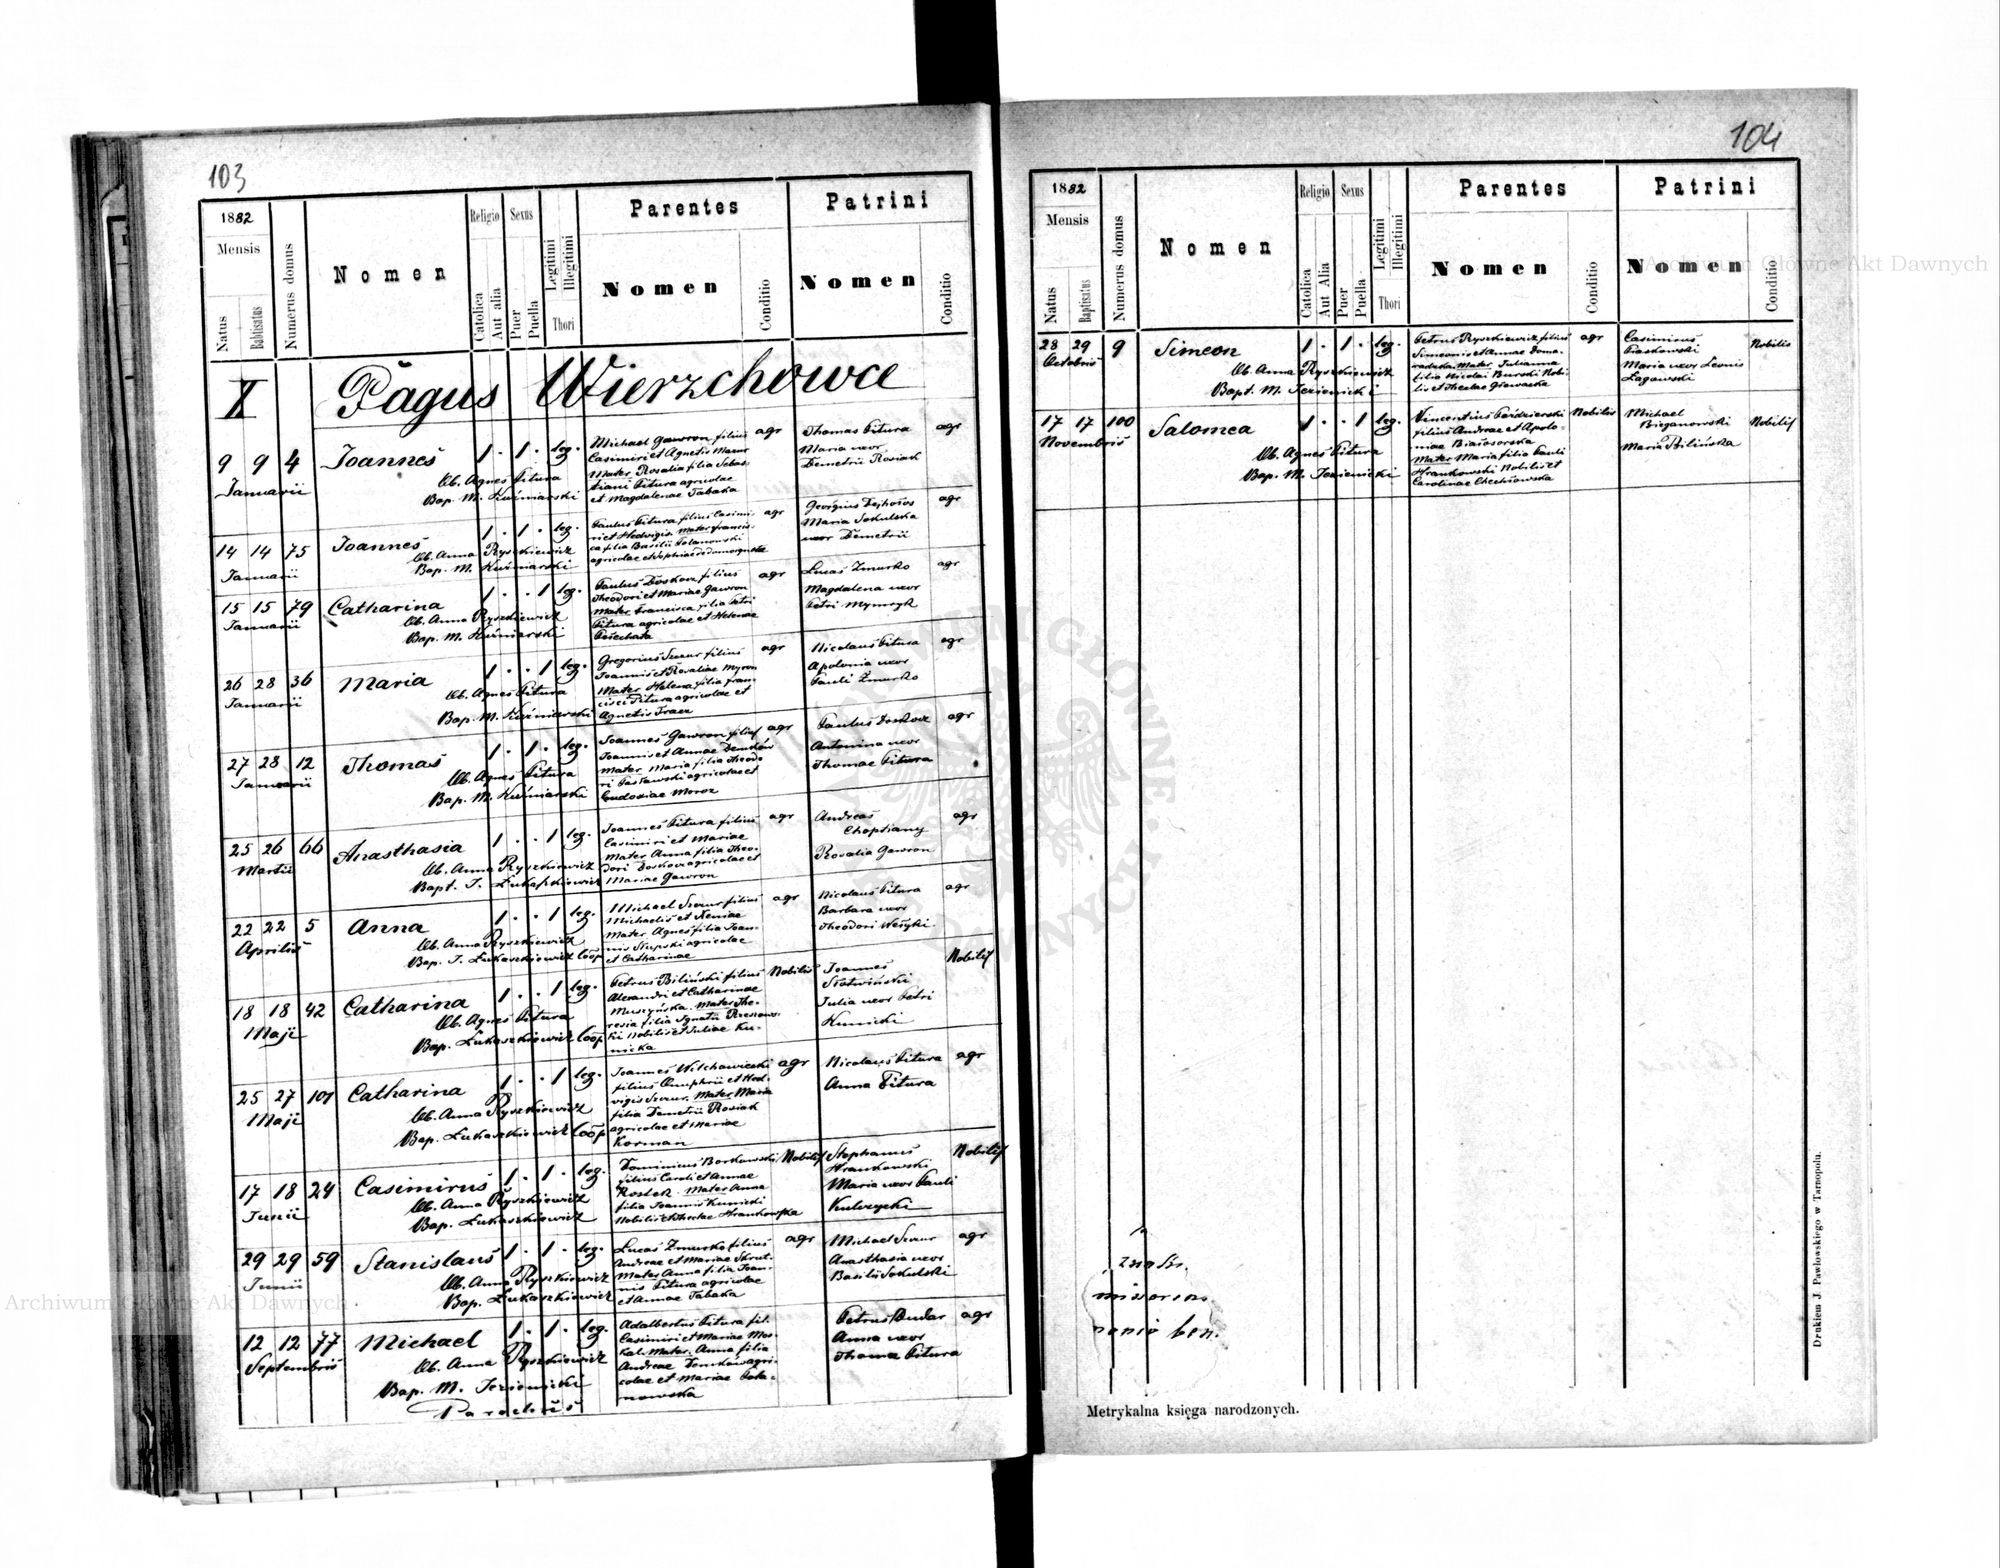 103
1882
Mensis
Natus
Babtisatus
Numerus domus
Nomen
Religio
Catolica
Aut alia
Sexus
Puer
Puella
Legitimi
Illegitimi
Thori
Parentes
Nomen
Conditio
Patrini
Nomen
Conditio
X Pagus Wierzchowce
9 9 4 Joannes 1 . 1 . leg. Michael Gawron filius agr Thomas Pitura agr
Januarii
Casimiri et Agnetis Mazur
Maria uxor
Ob. Agnes Pitura
Mater Rosalia filia Sebas-
Demetrii Rosiak
Bap. M. Kuźniarski
tiani Pitura agricolae
et Magdalenae Tabaka
14 14 75 Joannes 1 . 1 . leg. Paulus Pitura filius Casimi- agr Georgius
Januarii
ri et Hedwigis Mater Francis-
Maria Sokulska
Ob. Anna Ryszkiewicz
ca filia Basilii
uxor Demetrii
Bap. M. Kuźniarski
agricolae et Sophiae
agr
15 15 79 Catharina 1 . . 1 leg. Paulus Doskocz filius agr Lucas Zmurko agr
Januarii
Theodori et Mariae Gawron
Magdalena uxor
Ob. Anna Ryszkiewicz
Mater Francisca filia Petri
Petri Mymryk
Bap. M. Kuźniarski
Pitura agricolae et Helenae
26 28 36 Maria 1 . . 1 leg. Gregorius filius agr Nicolaus Pitura agr
Januarii
Joannis et Rosaliae Myron
Apolonia uxor
Ob. Agnes Pitura
Mater Helena filia Fran-
Pauli Zmurko
Bap. M. Kuźniarski
cisci Pitura agricolae et
Agnetis
27 28 12 Thomas 1 . 1 . leg. Joannes Gawron filius agr Paulus Doskocz agr
Januarii
Joannis et Annae Demków
Antonina uxor
Ob. Agnes Pitura
Mater Maria filia Theodo-
Thomae Pitura
Bap. M. Kuźniarski
ri Pasławski agricolae et
Eudoxiae Moroz
25 26 66 Anasthasia 1 . . 1 leg. Joannes Pitura filius agr Andreas agr
Martii
Casimiri et Mariae
Choptiany
Ob. Anna Ryszkiewicz
Mater Anna filia Theo-
Rosalia Gawron
Bapt. J. Łukaszkiewicz
dori Doskocz agricolae et
Mariae Gawron
22 22 5 Anna 1 . . 1 leg. Michael filius agr Nicolaus Pitura agr
Aprilis
Michaelis et Xeniae
Barbara uxor
Ob. Anna Ryszkiewicz
Mater Agnes filia Joan-
Theodori
Bap. J. Łukaszkiewicz Coop
nis Słupski agricolae
et Catharinae
18 18 42 Catharina 1 . . 1 leg. Petrus Biliński filius Nobilis Joannes Nobilis
Maji
Alexandri et Catharinae
Słotwiński
Ob. Agnes Pitura
Muszyńska. Mater The-
Julia uxor Petri
Bap. Łukaszkiewicz Coop
resia filia Ignatii
Kunicki
ki Nobilis et Juliae Ku-
nicka
25 27 101 Catharina 1 . . 1 leg. Joannes agr Nicolaus Pitura agr
Maji
filius Onuphrii et Hed-
Anna Pitura
Ob. Anna Ryszkiewicz
vigis Mater Maria
Bap. Łukaszkiewicz Coop
filia Demetrii Rosiak
agricolae et Mariae
Korman
17 18 24 Casimirus 1 . 1 . leg. Dominicus Borkowski Nobilis Stephanus Nobilis
Junii
filius Caroli et Annae
Hrankowski
Ob. Anna Ryszkiewicz
Mater Anna
Maria uxor Pauli
Bap. Łukaszkiewicz
filia Joannis Kunicki
Kulczycki
Nobilis et Theclae Hrankowska
29 29 59 Stanislaus 1 . 1 . leg. Lucas Zmurko filius agr Michael agr
Junii
Andreae et Mariae
Anasthasia uxor
Ob. Anna Ryszkiewicz
Mater Anna filia Joan-
Basilii Sokulski
Bap. Łukaszkiewicz
nis Pitura agricolae
et Annae Tabaka
12 12 77 Michael 1 . 1 . leg. Adalbertus Pitura fil. Petrus Dudar agr
Septembris
Casimiri et Mariae Mos-
Anna uxor
Ob. Anna Ryszkiewicz
kal. Mater Anna filia
Thoma Pitura
Bap. M. Jezienicki
Andreae Demków agri-
Parochus
colae et Mariae
nowska
104
1882
Mensis
Natus
Baptisatus
Numerus domus
Nomen
Religio
Catolica
Aut Alia
Sexus
Puer
Puella
Legitimi
Illegitimi
Thori
Parentes
Nomen
Conditio
Patrini
Nomen
Conditio
28 29 9 Simeon 1 . 1 . leg. Petrus Ryszkiewicz filius agr Casimirus Nobilis
Octobris
Simeonis et Annae Doma-
Piaskowski
Ob. Anna Ryszkiewicz
radzka. Mater Julianna
Maria uxor Leonis
Bapt. M. Jezienicki
filia Nicolai Burski Nobi-
Łagowski
lis et Theclae
17 17 100 Salomea 1 . . 1 leg. Vincentius Nobilis Michael Nobilis
Novembris
filius Andreae et Apolo-
Bieganowski
Ob. Agnes Pitura
niae
Maria Bilińska
Bap. M. Jezienicki
Mater Maria filia Pauli
Hrankowski Nobilis et
Carolinae
Metrykalna księga narodzonych.
Drukiem J. Pawłowskiego w Tarnopolu.
Archiwum Główne Akt Dawnych
Archiwum Główne Akt Dawnych
ARCHIWUM GŁÓWNE AKT DAWNYCH